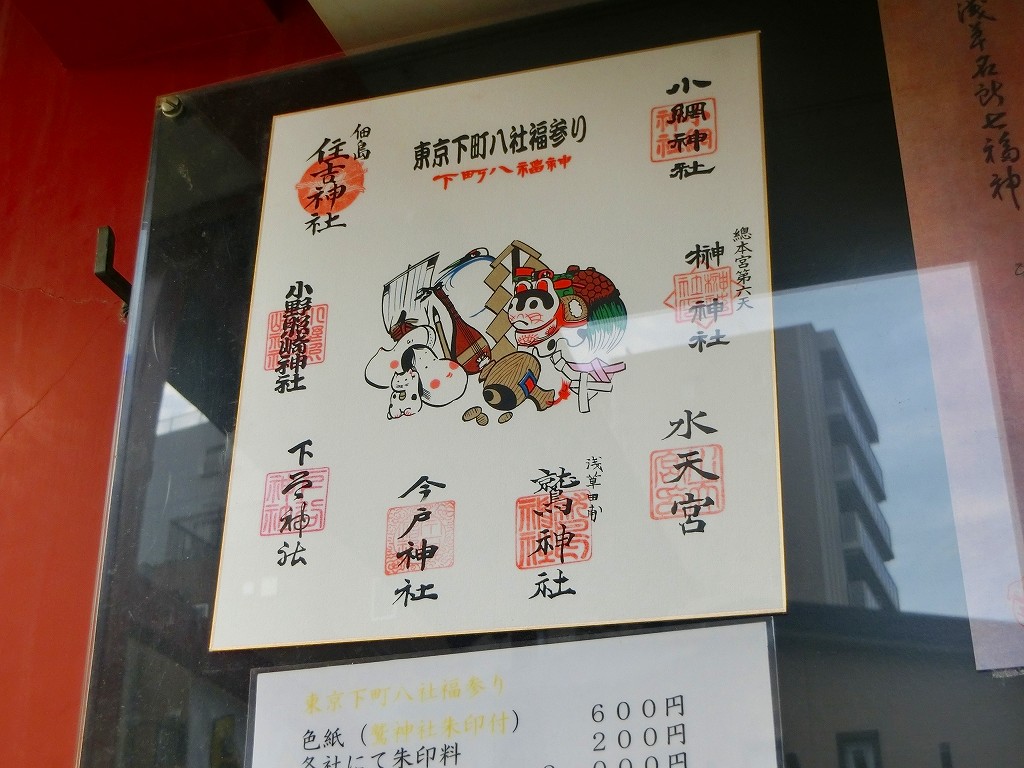 東京下町八社福参り
下町八福神
小網神社
總本宮第六天
榊神社
水天宮
浅草田甫
鷲神社
今戸神社
下谷神社
小野照崎神社
佃島
住吉神社
浅草名所七福神
東京下町八社福参り
色紙（鷲神社朱印付） 600円
各社にて朱印料 200円